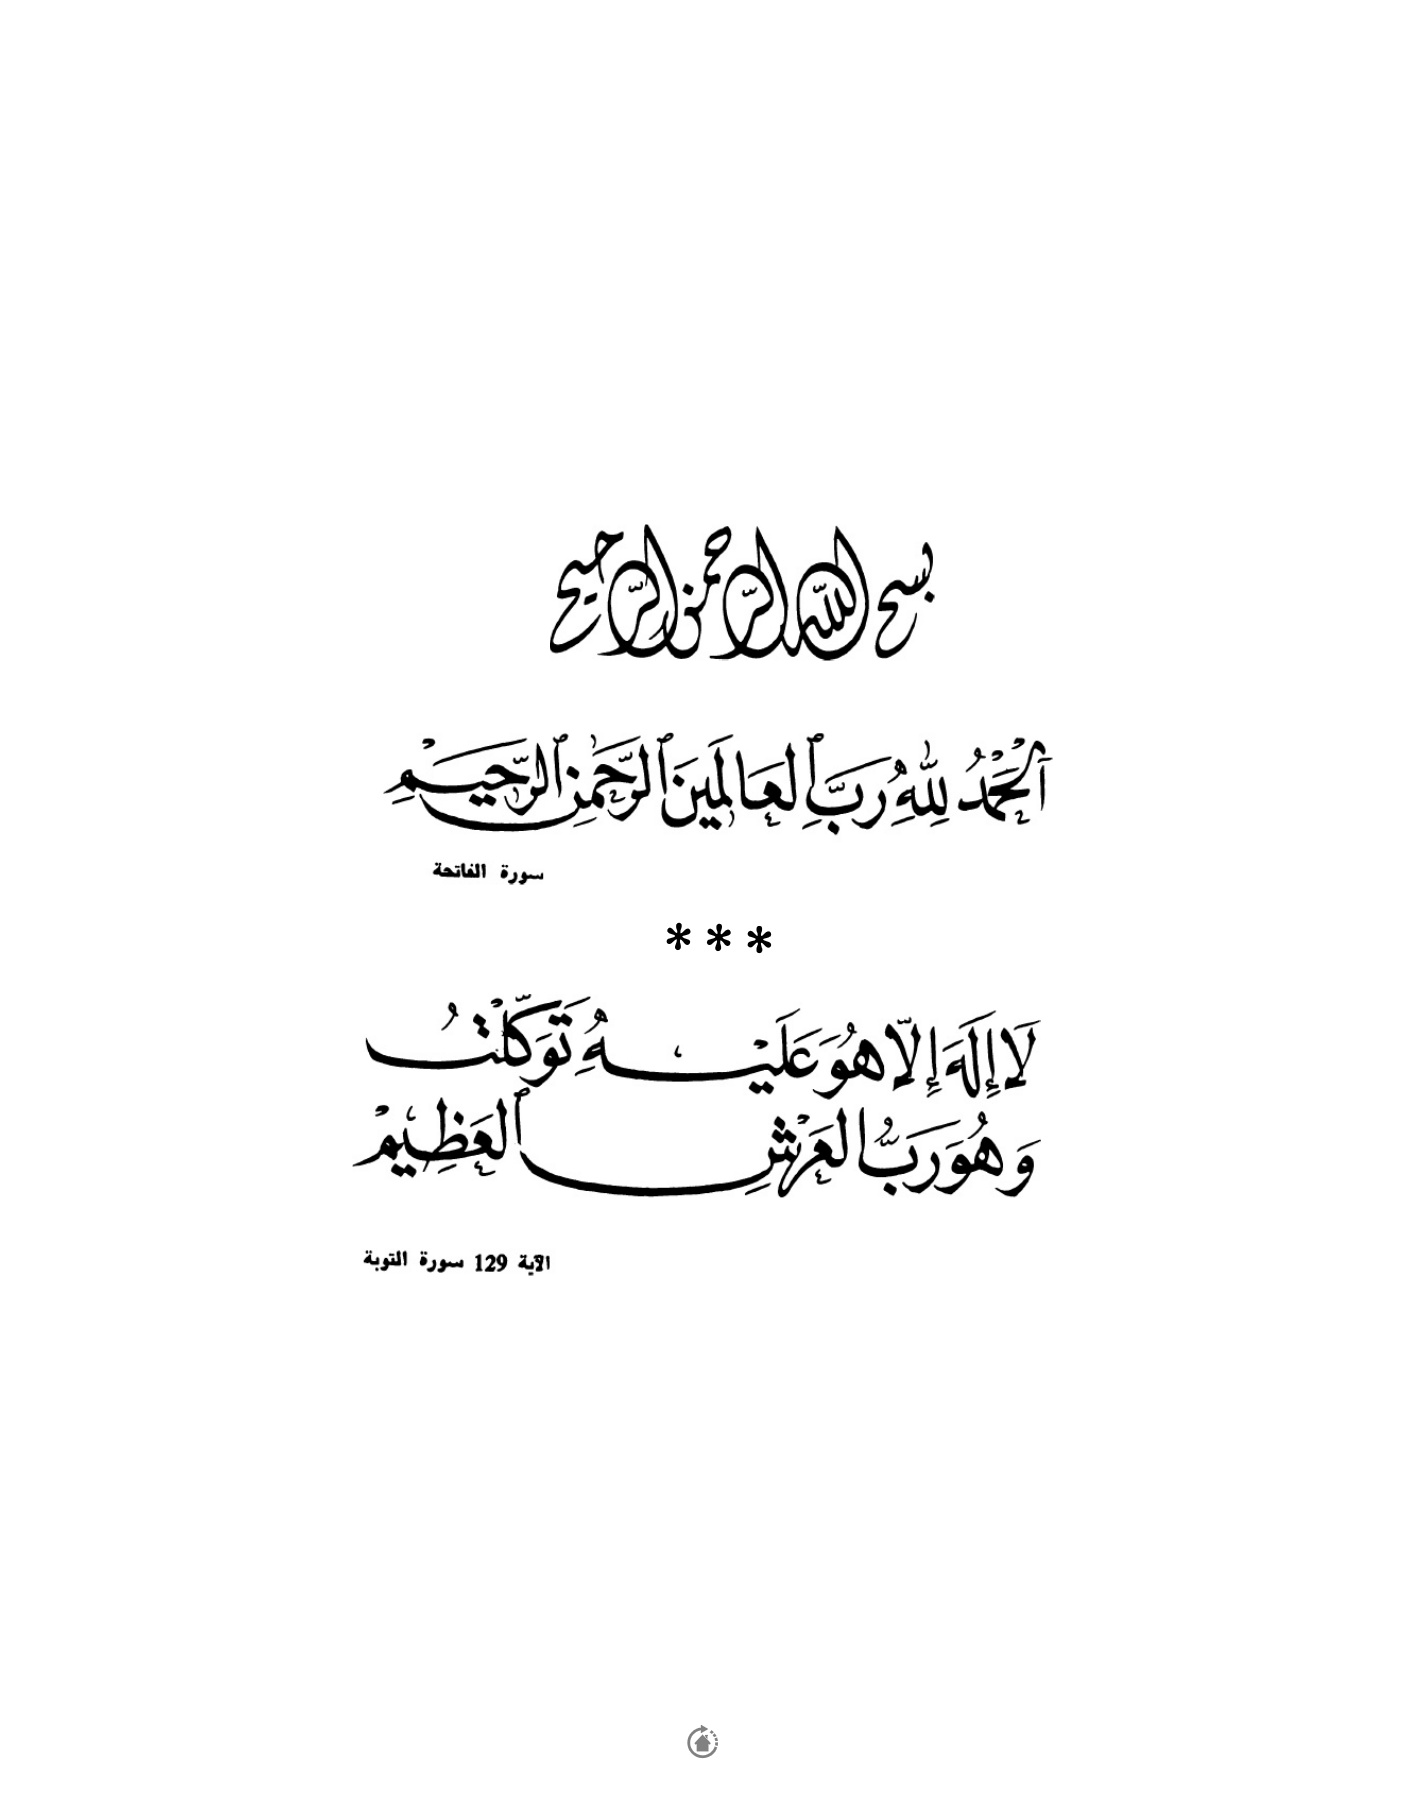 بسم الله الرحمن الرحيم
ٱلْحَمْدُ لِلّٰهِ رَبِّ ٱلعَالَمِينَ ٱلرَّحْمٰنِ ٱلرَّحِيمِ
سورة الفاتحة
***
لَا إِلَهَ إِلّا هُوَ عَلَيْهِ تَوَكَّلْتُ
وَهُوَ رَبُّ العَرْشِ ٱلعَظِيمْ
الآية 129 سورة التوبة